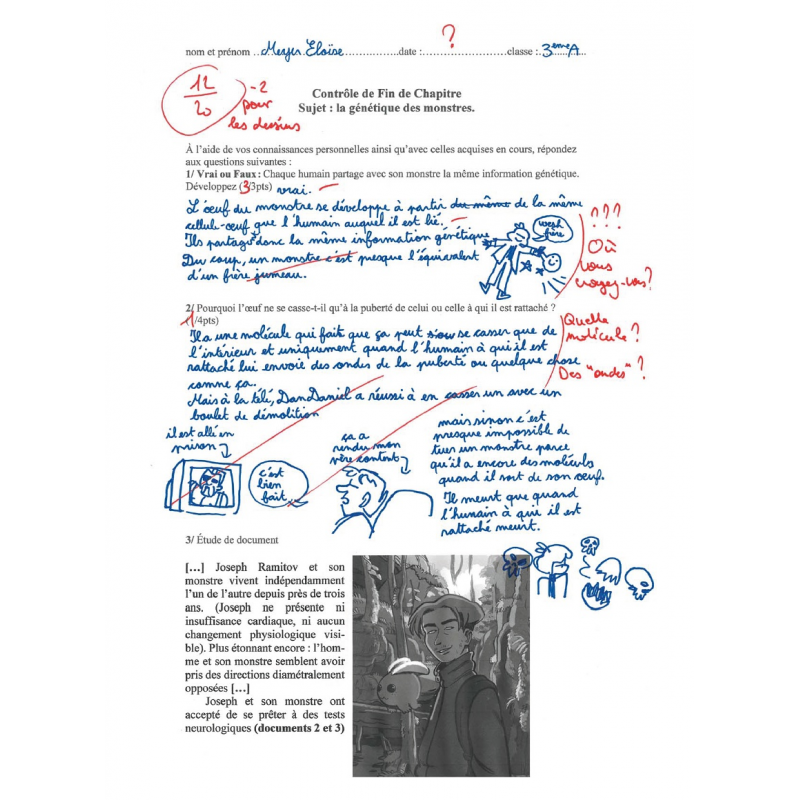 ?
nom et prénom .. Meyer Eloïse ................date :.........................classe : 3emeA
12/20 -2 pour les dessins
Contrôle de Fin de Chapitre
Sujet : la génétique des monstres.
À l'aide de vos connaissances personnelles ainsi qu'avec celles acquises en cours, répondez
aux questions suivantes :
1/ Vrai ou Faux : Chaque humain partage avec son monstre la même information génétique.
Développez (3/3pts) vrai.
L'œuf du monstre se développe à partir du même de la même
cellule-œuf que l'humain auquel il est lié.
Ils partagent donc la même information génétique
Du coup, un monstre c'est presque l'équivalent
d'un frère jumeau.
wesh
frère
???
Où
vous
croyez-vous?
2/ Pourquoi l'œuf ne se casse-t-il qu'à la puberté de celui ou celle à qui il est rattaché ?
(1/4pts)
Il a une molécule qui fait que ça peut se casser que de
l'intérieur et uniquement quand l'humain à qui il est
rattaché lui envoie des ondes de la puberté ou quelque chose
comme ça.
Mais à la télé, DanDaniel a réussi à en casser un avec un
boulet de démolition
Quelle
molécule?
Des "ondes"?
il est allé en
prison
c'est
bien
fait
ça a
rendu mon
père content
mais sinon c'est
presque impossible de
tuer un monstre parce
qu'il a encore des molécules
quand il sort de son œuf.
Il meurt que quand
l'humain à qui il est
rattaché meurt.
3/ Étude de document
[…] Joseph Ramitov et son
monstre vivent indépendamment
l'un de l'autre depuis près de trois
ans. (Joseph ne présente ni
insuffisance cardiaque, ni aucun
changement physiologique visi-
ble). Plus étonnant encore : l'hom-
me et son monstre semblent avoir
pris des directions diamétralement
opposées […]
Joseph et son monstre ont
accepté de se prêter à des tests
neurologiques (documents 2 et 3)